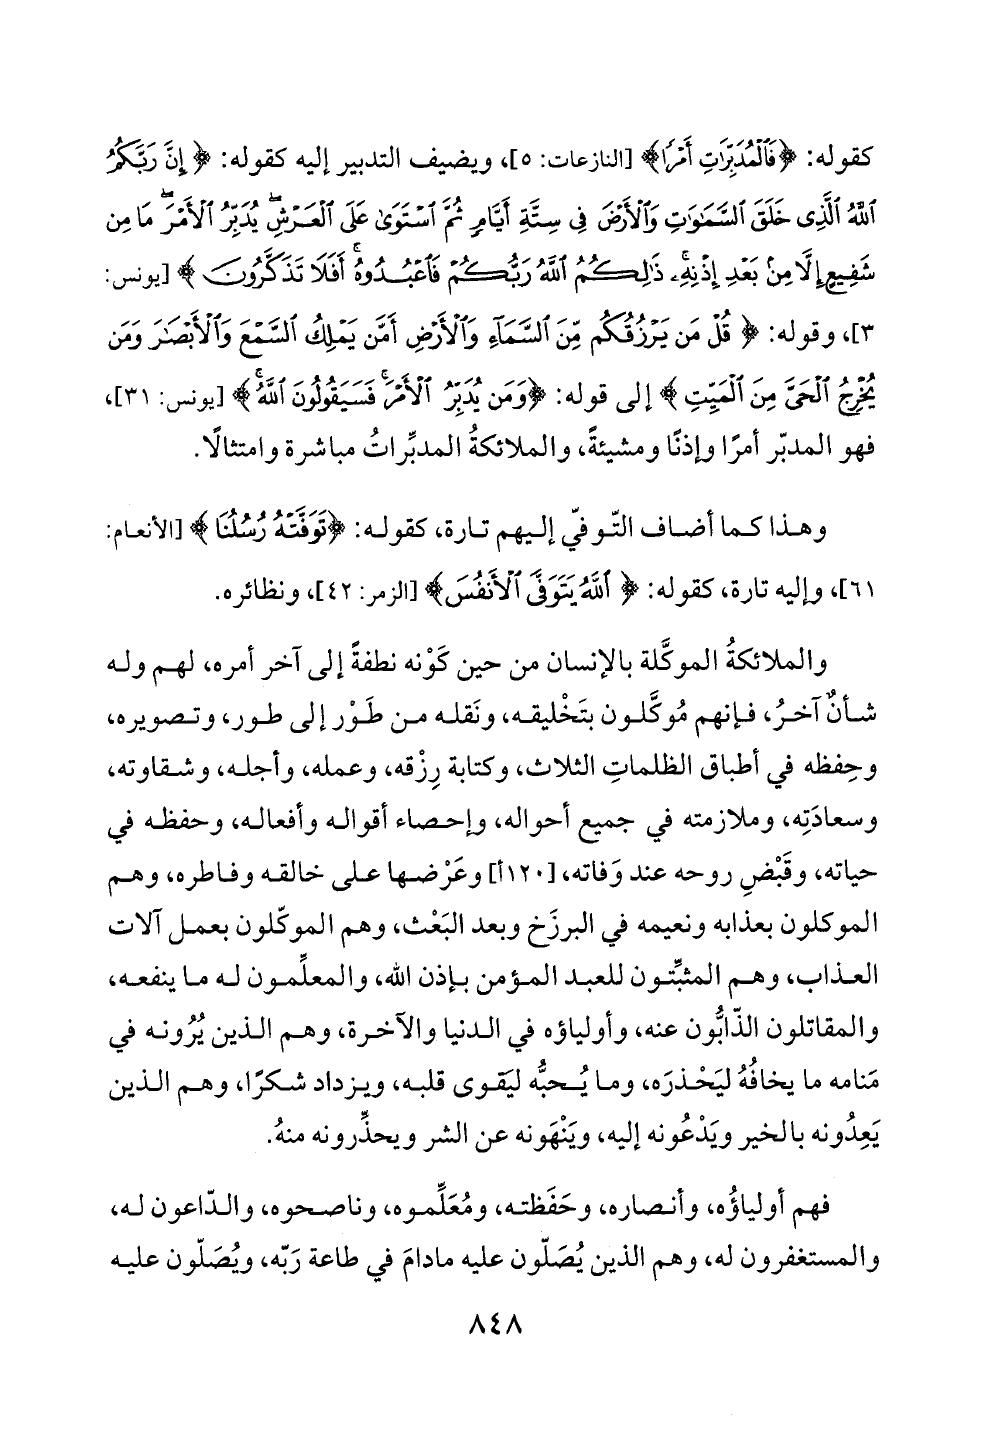 كقوله: ﴿فَٱلْمُدَبِّرَٰتِ أَمْرًا﴾ [النازعات: ٥]، ويضيف التدبير إليه كقوله: ﴿إِنَّ رَبَّكُمُ
ٱللَّهُ ٱلَّذِى خَلَقَ ٱلسَّمَٰوَٰتِ وَٱلْأَرْضَ فِى سِتَّةِ أَيَّامٍ ثُمَّ ٱسْتَوَىٰ عَلَى ٱلْعَرْشِ ۖ يُدَبِّرُ ٱلْأَمْرَ ۖ مَا مِن
شَفِيعٍ إِلَّا مِنۢ بَعْدِ إِذْنِهِۦ ۚ ذَٰلِكُمُ ٱللَّهُ رَبُّكُمْ فَٱعْبُدُوهُ ۚ أَفَلَا تَذَكَّرُونَ﴾ [يونس:
٣]، وقوله: ﴿قُلْ مَن يَرْزُقُكُم مِّنَ ٱلسَّمَآءِ وَٱلْأَرْضِ أَمَّن يَمْلِكُ ٱلسَّمْعَ وَٱلْأَبْصَٰرَ وَمَن
يُخْرِجُ ٱلْحَىَّ مِنَ ٱلْمَيِّتِ﴾ إلى قوله: ﴿وَمَن يُدَبِّرُ ٱلْأَمْرَ ۚ فَسَيَقُولُونَ ٱللَّهُ ۚ﴾ [يونس: ٣١]،
فهو المدبّر أمرًا وإذنًا ومشيئةً، والملائكةُ المدبِّراتُ مباشرة وامتثالًا.
وهذا كما أضاف التّوفّي إليهم تارة، كقوله: ﴿تَوَفَّتْهُ رُسُلُنَا﴾ [الأنعام:
٦١]، وإليه تارة، كقوله: ﴿ٱللَّهُ يَتَوَفَّى ٱلْأَنفُسَ﴾ [الزمر: ٤٢]، ونظائره.
والملائكةُ الموكَّلة بالإنسان من حين كَوْنه نطفةً إلى آخر أمره، لهم وله
شأنٌ آخرُ، فإنهم مُوكَّلون بتَخْليقه، ونَقله من طَوْر إلى طور، وتصويره،
وحِفظه في أطباق الظلماتِ الثلاث، وكتابة رِزْقه، وعمله، وأجله، وشقاوته،
وسعادَتِه، وملازمته في جميع أحواله، وإحصاء أقواله وأفعاله، وحفظه في
حياته، وقَبْضِ روحه عند وَفاته، [١٢٠أ] وعَرْضها على خالقه وفاطره، وهم
الموكلون بعذابه ونعيمه في البرزَخ وبعد البَعْث، وهم الموكّلون بعمل آلات
العذاب، وهم المثبِّتون للعبد المؤمن بإذن الله، والمعلِّمون له ما ينفعه،
والمقاتلون الذّابُّون عنه، وأولياؤه في الدنيا والآخرة، وهم الذين يُرُونه في
مَنامه ما يخافُهُ ليَحْذرَه، وما يُحبُّه ليَقوى قلبه، ويزداد شكرًا، وهم الذين
يَعِدُونه بالخير ويَدْعُونه إليه، ويَنْهَونه عن الشر ويحذِّرونه منهُ.
فهم أولياؤُه، وأنصاره، وحَفَظته، ومُعَلِّموه، وناصحوه، والدّاعون له،
والمستغفرون له، وهم الذين يُصَلّون عليه مادامَ في طاعة رَبّه، ويُصَلّون عليه
٨٤٨